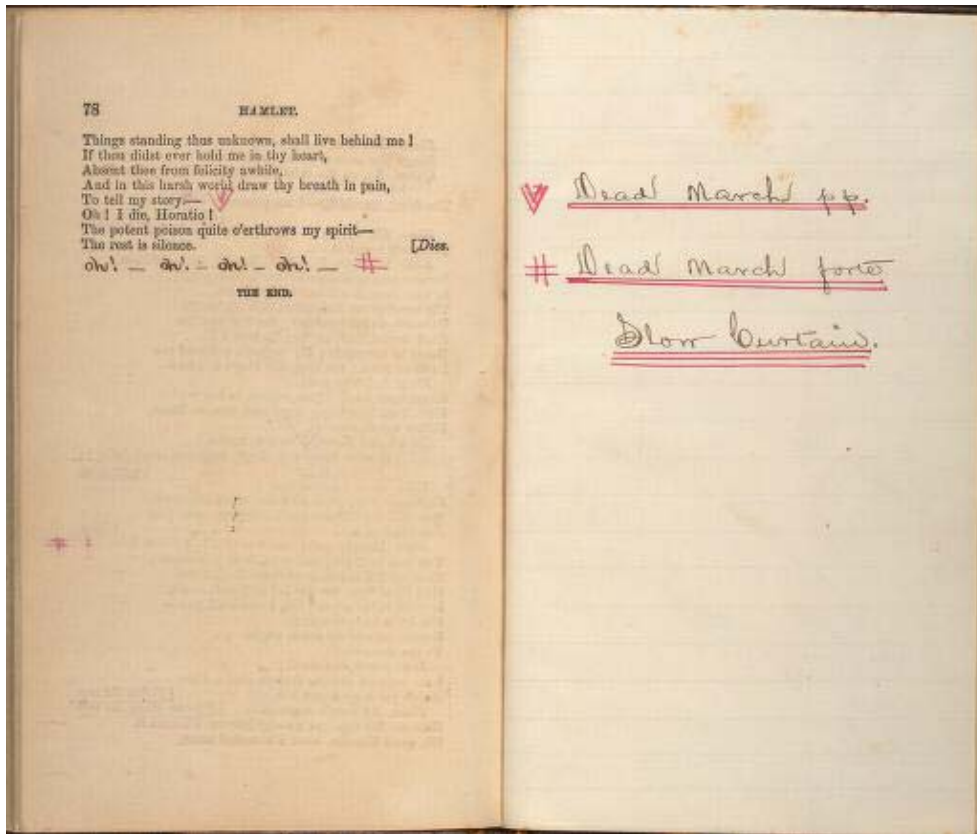 78
HAMLET.
Things standing thus unknown, shall live behind me!
If thou didst ever hold me in thy heart,
Absent thee from felicity awhile,
And in this harsh world draw thy breath in pain,
To tell my story.—
Oh! I die, Horatio!
The potent poison quite o'erthrows my spirit—
The rest is silence. [Dies.
oh! — oh! — oh! — oh! — #
THE END.
Dead March pp.
# Dead March forte
Slow Curtain.